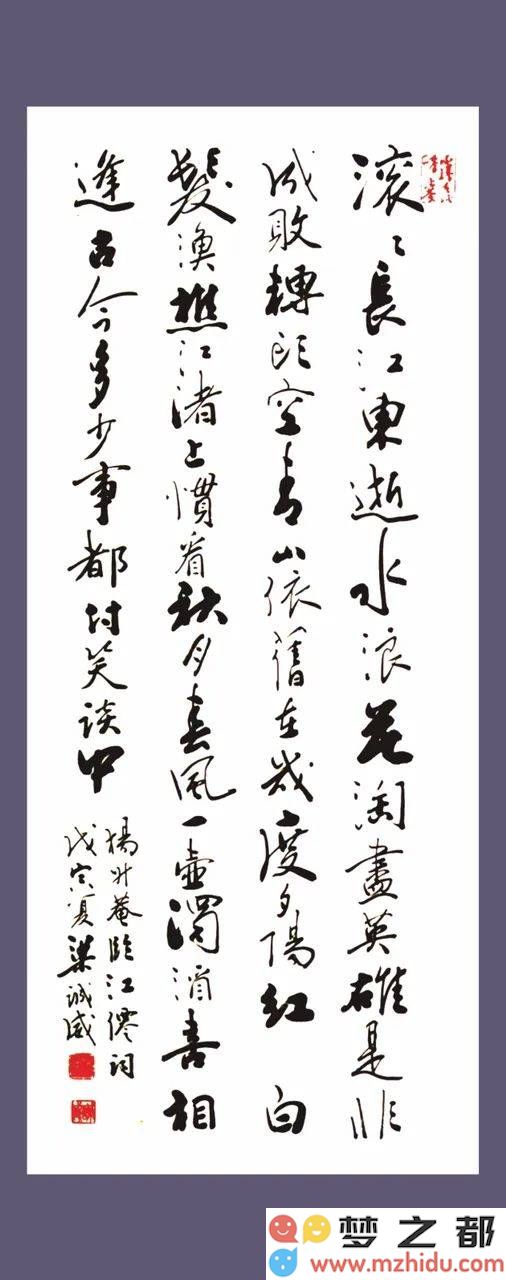 滚〻長江東逝水浪花淘盡英雄是非
成敗轉頭空青山依舊在幾度夕陽紅 白
髮漁樵江渚上慣看秋月春風一壺濁酒喜相
逢古今多少事都付笑談中
楊升菴臨江僊詞
戊寅夏梁誠威
梦之都
www.mzhidu.com